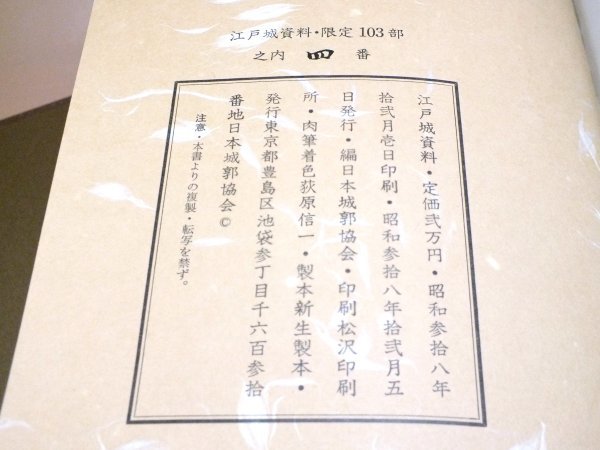 江戸城資料・限定103部
之内 四 番
江戸城資料・定価弐万円・昭和参拾八年
拾弐月壱日印刷・昭和参拾八年拾弐月五
日発行・編日本城郭協会・印刷松沢印刷
所・肉筆着色荻原信一・製本新生製本・
発行東京都豊島区池袋参丁目千六百参拾
番地日本城郭協会©
注意・本書よりの複製・転写を禁ず。